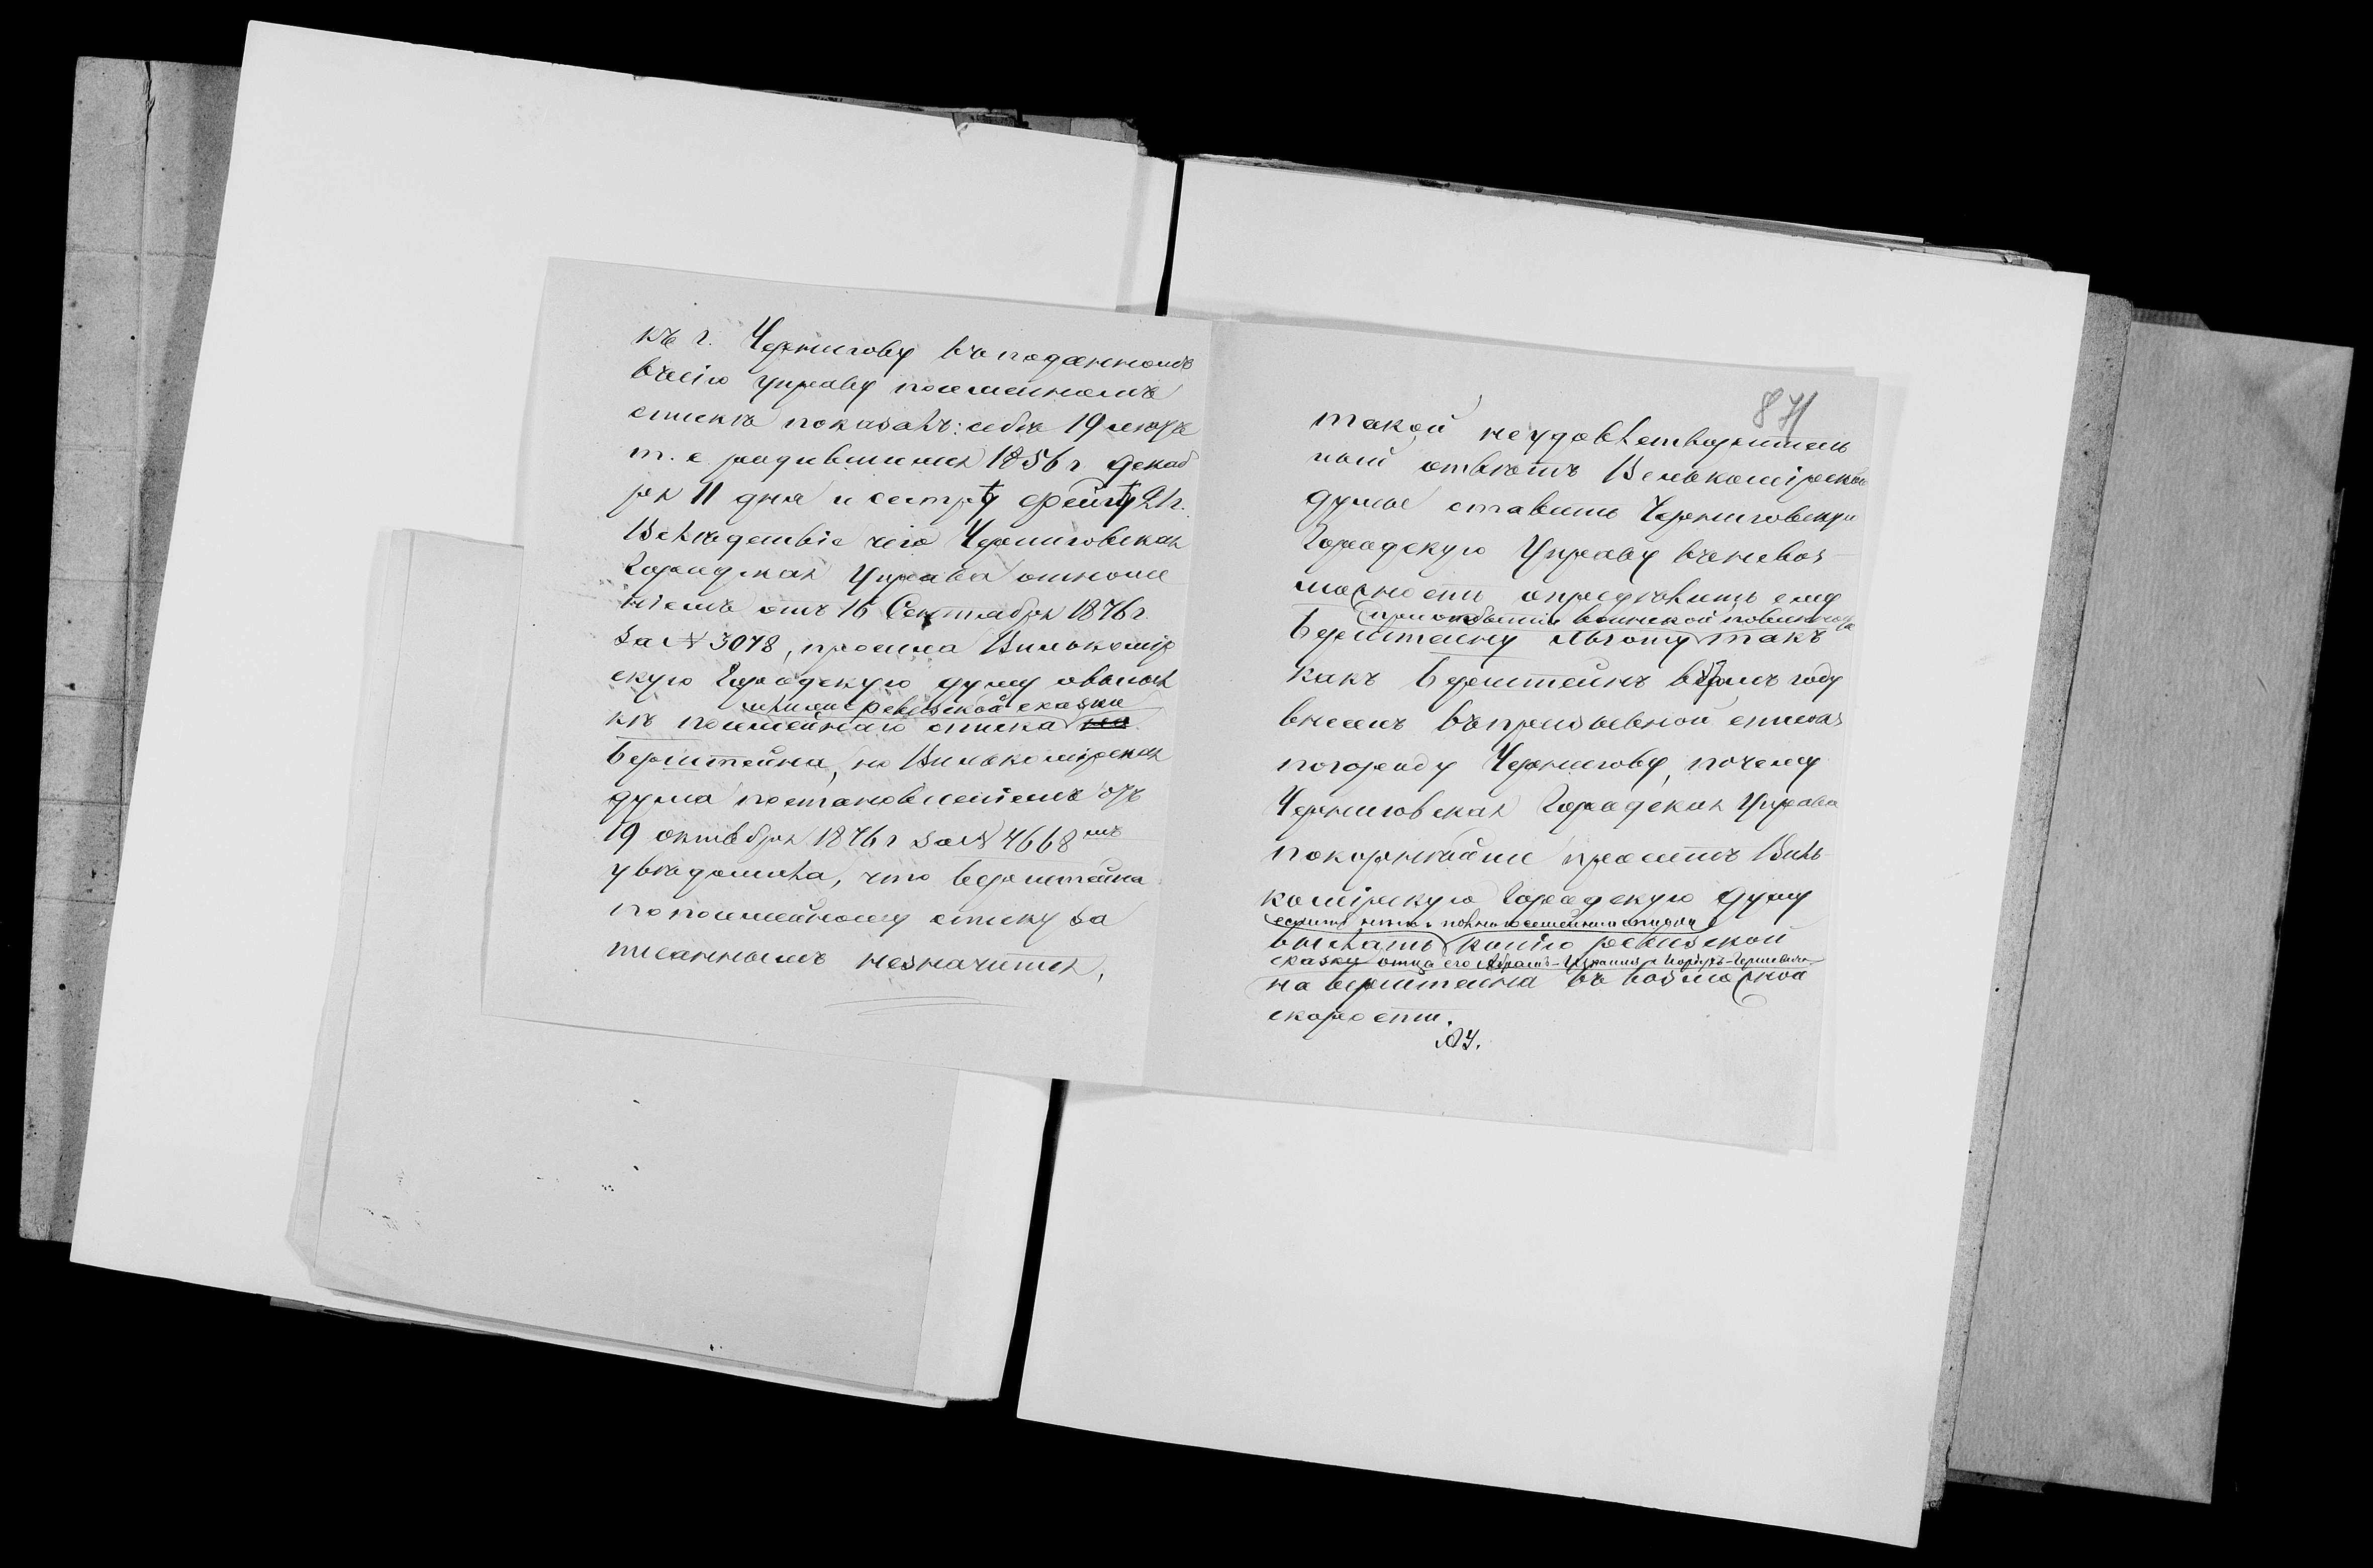 къ г. Чернигову въ поданномъ
въ сію Управу посемейномъ
спискѣ показалъ: себя 19 лѣтъ
т. е. родившимся 1856 г Декаб
ря 11 дня и сестру Фейгу 21 г.
Вслѣдствіе чего Черниговская
Городская Управа отноше
ніемъ отъ 16 Сентября 1876 г
За № 3078, просила Вилькомір
скую Городскую думу о высыл
или ревизской сказки
кѣ посемейнаго списка на
Берштейна, но Вилькомірская
дума постановленіемъ отъ
19 октября 1876 г За № 4668 мъ
увѣдомила, что Берштейна
по посемейному списку за
писаннымъ незначится.
871
такой неудовлетворитель
ный отвѣтъ Велькомірской
думы ставитъ Черниговскую
Городскую Управу въ невоз-
можность опредѣлить ему
при отбытіи воинской повинности
Берштейну льготу такъ
какъ Берштейнъ въ 77мъ году
внесенъ въ призывной списокъ
по городу Чернигову, почему
Черниговская Городская Управа
покорнѣйше проситъ Виль-
комірскую Городскую Думу
если нѣтъ посемейнаго списка
выслать копію ревизской
сказки отца его Абрамъ-
на Берштейна въ возможной
скорости.